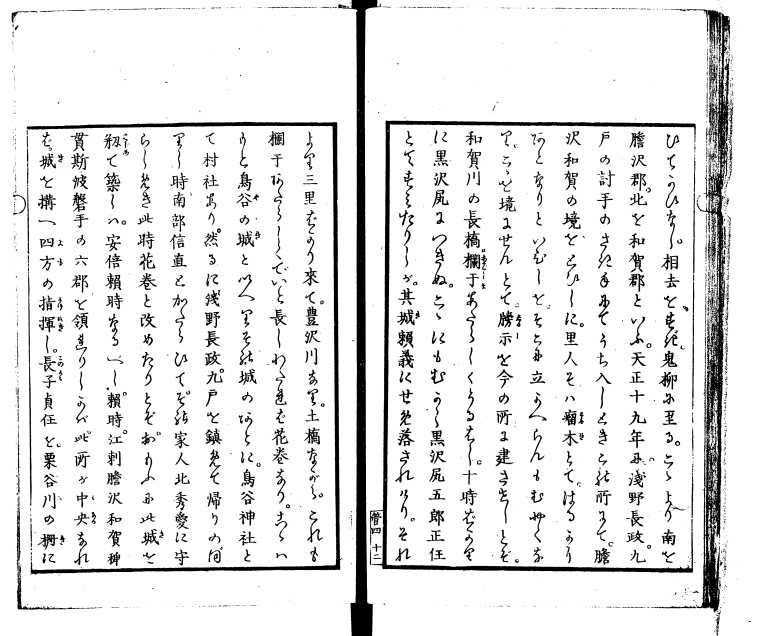 ひちかひなし。相去を過、鬼柳に至る。こゝより南を
膽沢郡。北を和賀郡といふ。天正十九年に浅野長政。九
戸の討手のさき手にてうち入しとき此所にて。膽
沢和賀の境をとひしに。里人そハ瘤木とて。はるかう
あとなりといひしを。そこに立かへらんもむやくな
り。こゝを境にせんとて。牓示を今の所に建させしとぞ。
和賀川の長橋欄干あたらしくうるはし。十時ばかり
に黒沢尻につきぬ。こゝにもむかし黒沢尻五郎正任
とてすまゐたりしが。其城頼義にせめ落されけり。それ
暦四 十二
より三里ばかり来て。豊沢川あり。土橋ながら。これも
欄干あたらしくていと長しわたれば花巻なり。こゝハ
もと鳥谷の城といへりその城のあとに。鳥谷神社と
て村社あり。然るに浅野長政九戸を鎮めて帰りのぼ
りし時南部信直とかたらひてその家人北秀愛に守
らしめき此時花巻と改めたりとぞおもふに此城を
初て築しハ。安倍頼時なるべし。頼時。江刺膽沢和賀稗
貫斯波磐手の六郡を領せりしかば此所が中央なれ
ば城を構へ四方の指揮し。長子貞任を。栗谷川の柵に